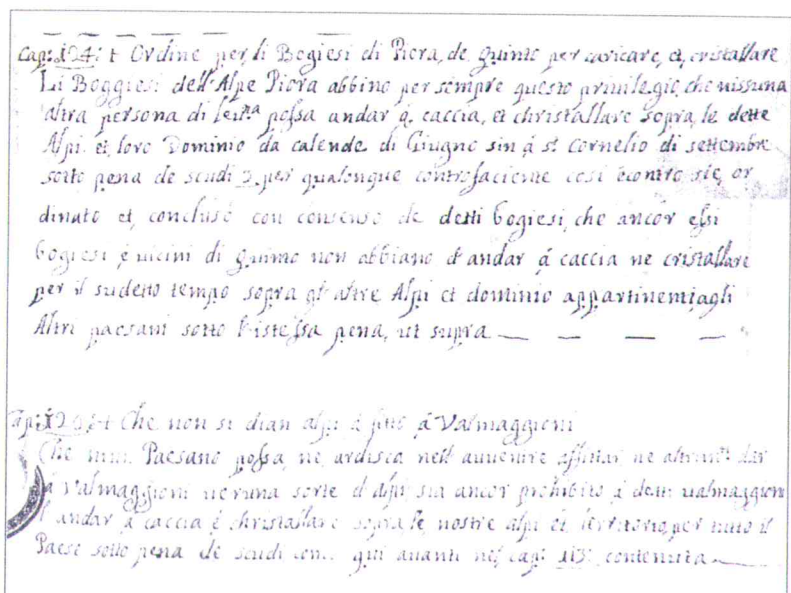 Cap: 124: t Ordine per, li Bogiesi di Piora, de Quinto per caricare, et, cristallare
Li Boggiesi dell'Alpe Piora abbino per sempre questo privilegio, che nissuna
altra persona di possa andar á caccia, et christallare sopra, le dette
Alpi et, loro Dominio da calende di Giugno sin á st Cornelio di settembre
sotto pena de scudi 3 per qualonque controfaciente cosi écontro sie, or
dinato et, concluso con consenso de detti bogiesi, che ancor essi
bogiesi, é vicini di Quinto non abbiano d'andar á caccia ne cristallare
per il sudetto tempo sopra gl'altre Alpi et dominio appartinentiagli
Altri paesani sotto l'istessa pena, ut supra — — — —
Cap: t Che non si dian alpi á fitto á Valmaggioni
Che Paesano possa, ne ardisca nell' avvenire affittar ne dar
á Valmaggioni veruna sorte d'alpi sia ancor prohibito á detti valmaggioni
d'andar á caccia é christallare sopra, le nostre alpi et territorio, per tutto il
Paese sotto pena de scudi come qui avanti nel cap: 113: contenuta —